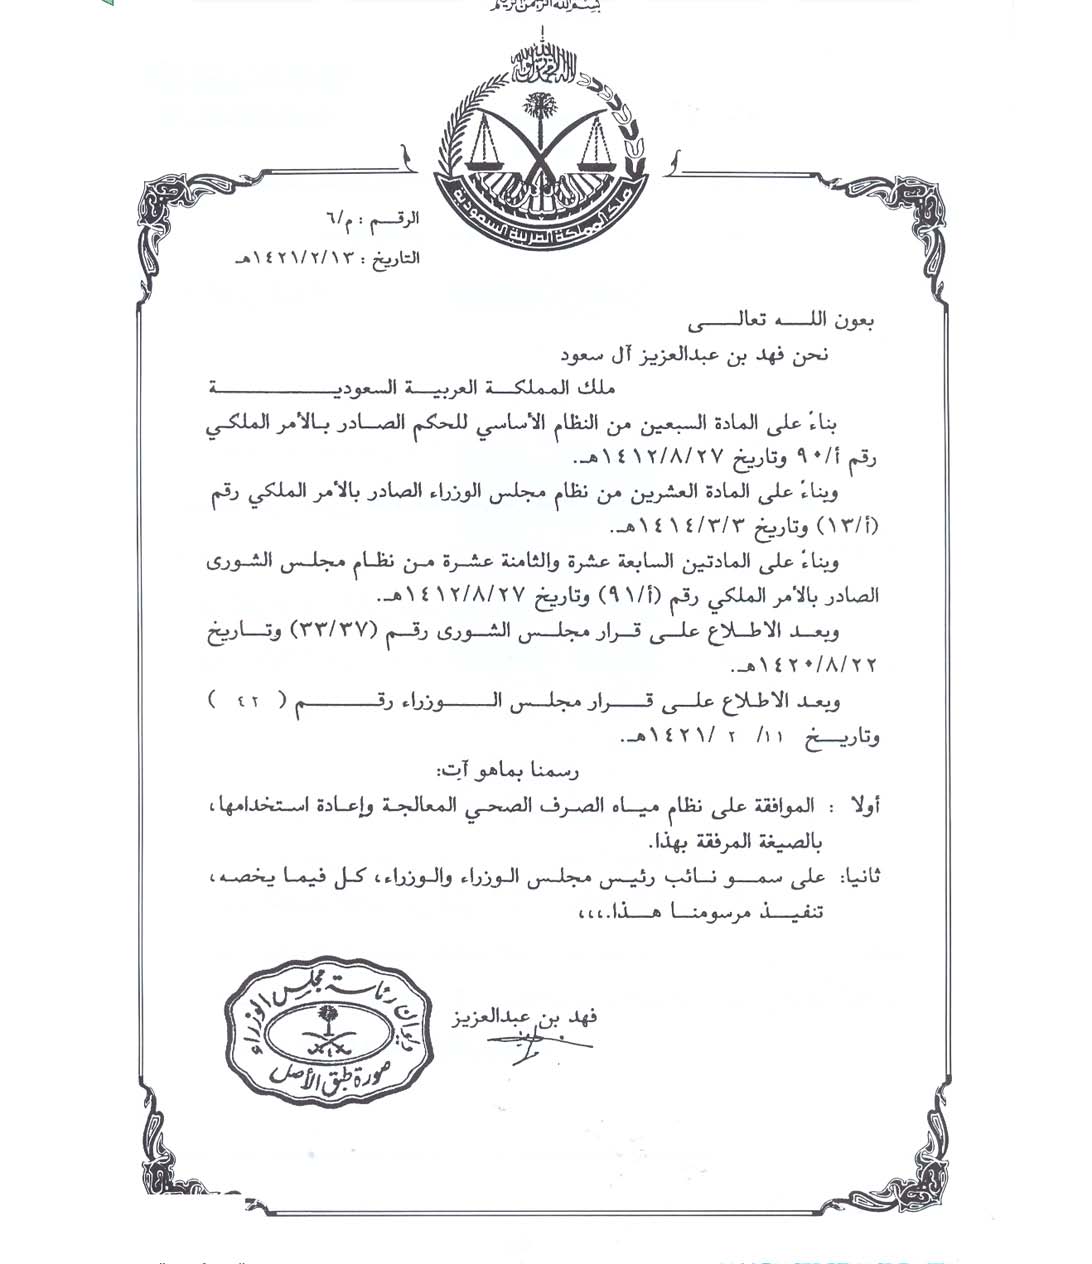 بسم الله الرحمن الرحيم
لا إله إلا الله محمد رسول الله
ملك المملكة العربية السعودية
الرقـــم : م/٦
التاريخ : ١٤٢١/٢/١٣هـ
بعون اللـــه تعالـــى
نحن فهد بن عبدالعزيز آل سعود
ملك المملكـة العربيـة السعوديـــــــة
بناءً على المادة السبعين من النظام الأساسي للحكم الصـادر بـالأمر الملكـي
رقم أ/٩٠ وتاريخ ١٤١٢/٨/٢٧هـ.
وبناءً على المادة العشرين من نظام مجلس الوزراء الصادر بالأمر الملكي رقم
(أ/١٣) وتاريخ ١٤١٤/٣/٣هـ.
وبناءً على المادتين السابعة عشرة والثامنة عشـرة مـن نظـام مجلـس الشورى
الصادر بالأمر الملكي رقم (أ/٩١) وتاريخ ١٤١٢/٨/٢٧هـ.
وبعـد الاطـلاع علـى قـرار مجلـس الشـورى رقـم (٣٣/٣٧) وتـاريخ
١٤٢٠/٨/٢٢هـ.
وبعـد الاطـلاع علـى قـرار مجلـس الـــوزراء رقـــم ( ٤٢ )
وتاريـخ ١١/ ٢ /١٤٢١هـ.
رسمنا بماهو آتِ:
أولا : الموافقة على نظام ميـاه الصـرف الصحـي المعالجـة وإعـادة اسـتخدامها،
بالصيغة المرفقة بهذا.
ثانيا: علـى سمـو نـائب رئيـس مجلـس الـوزراء والـوزراء، كـل فيمـا يخصـه،
تنفيـذ مرسومنـا هـذا.،،،
فهد بن عبدالعزيز
ديوان رئاسة مجلس الوزراء
صورة طبق الأصل